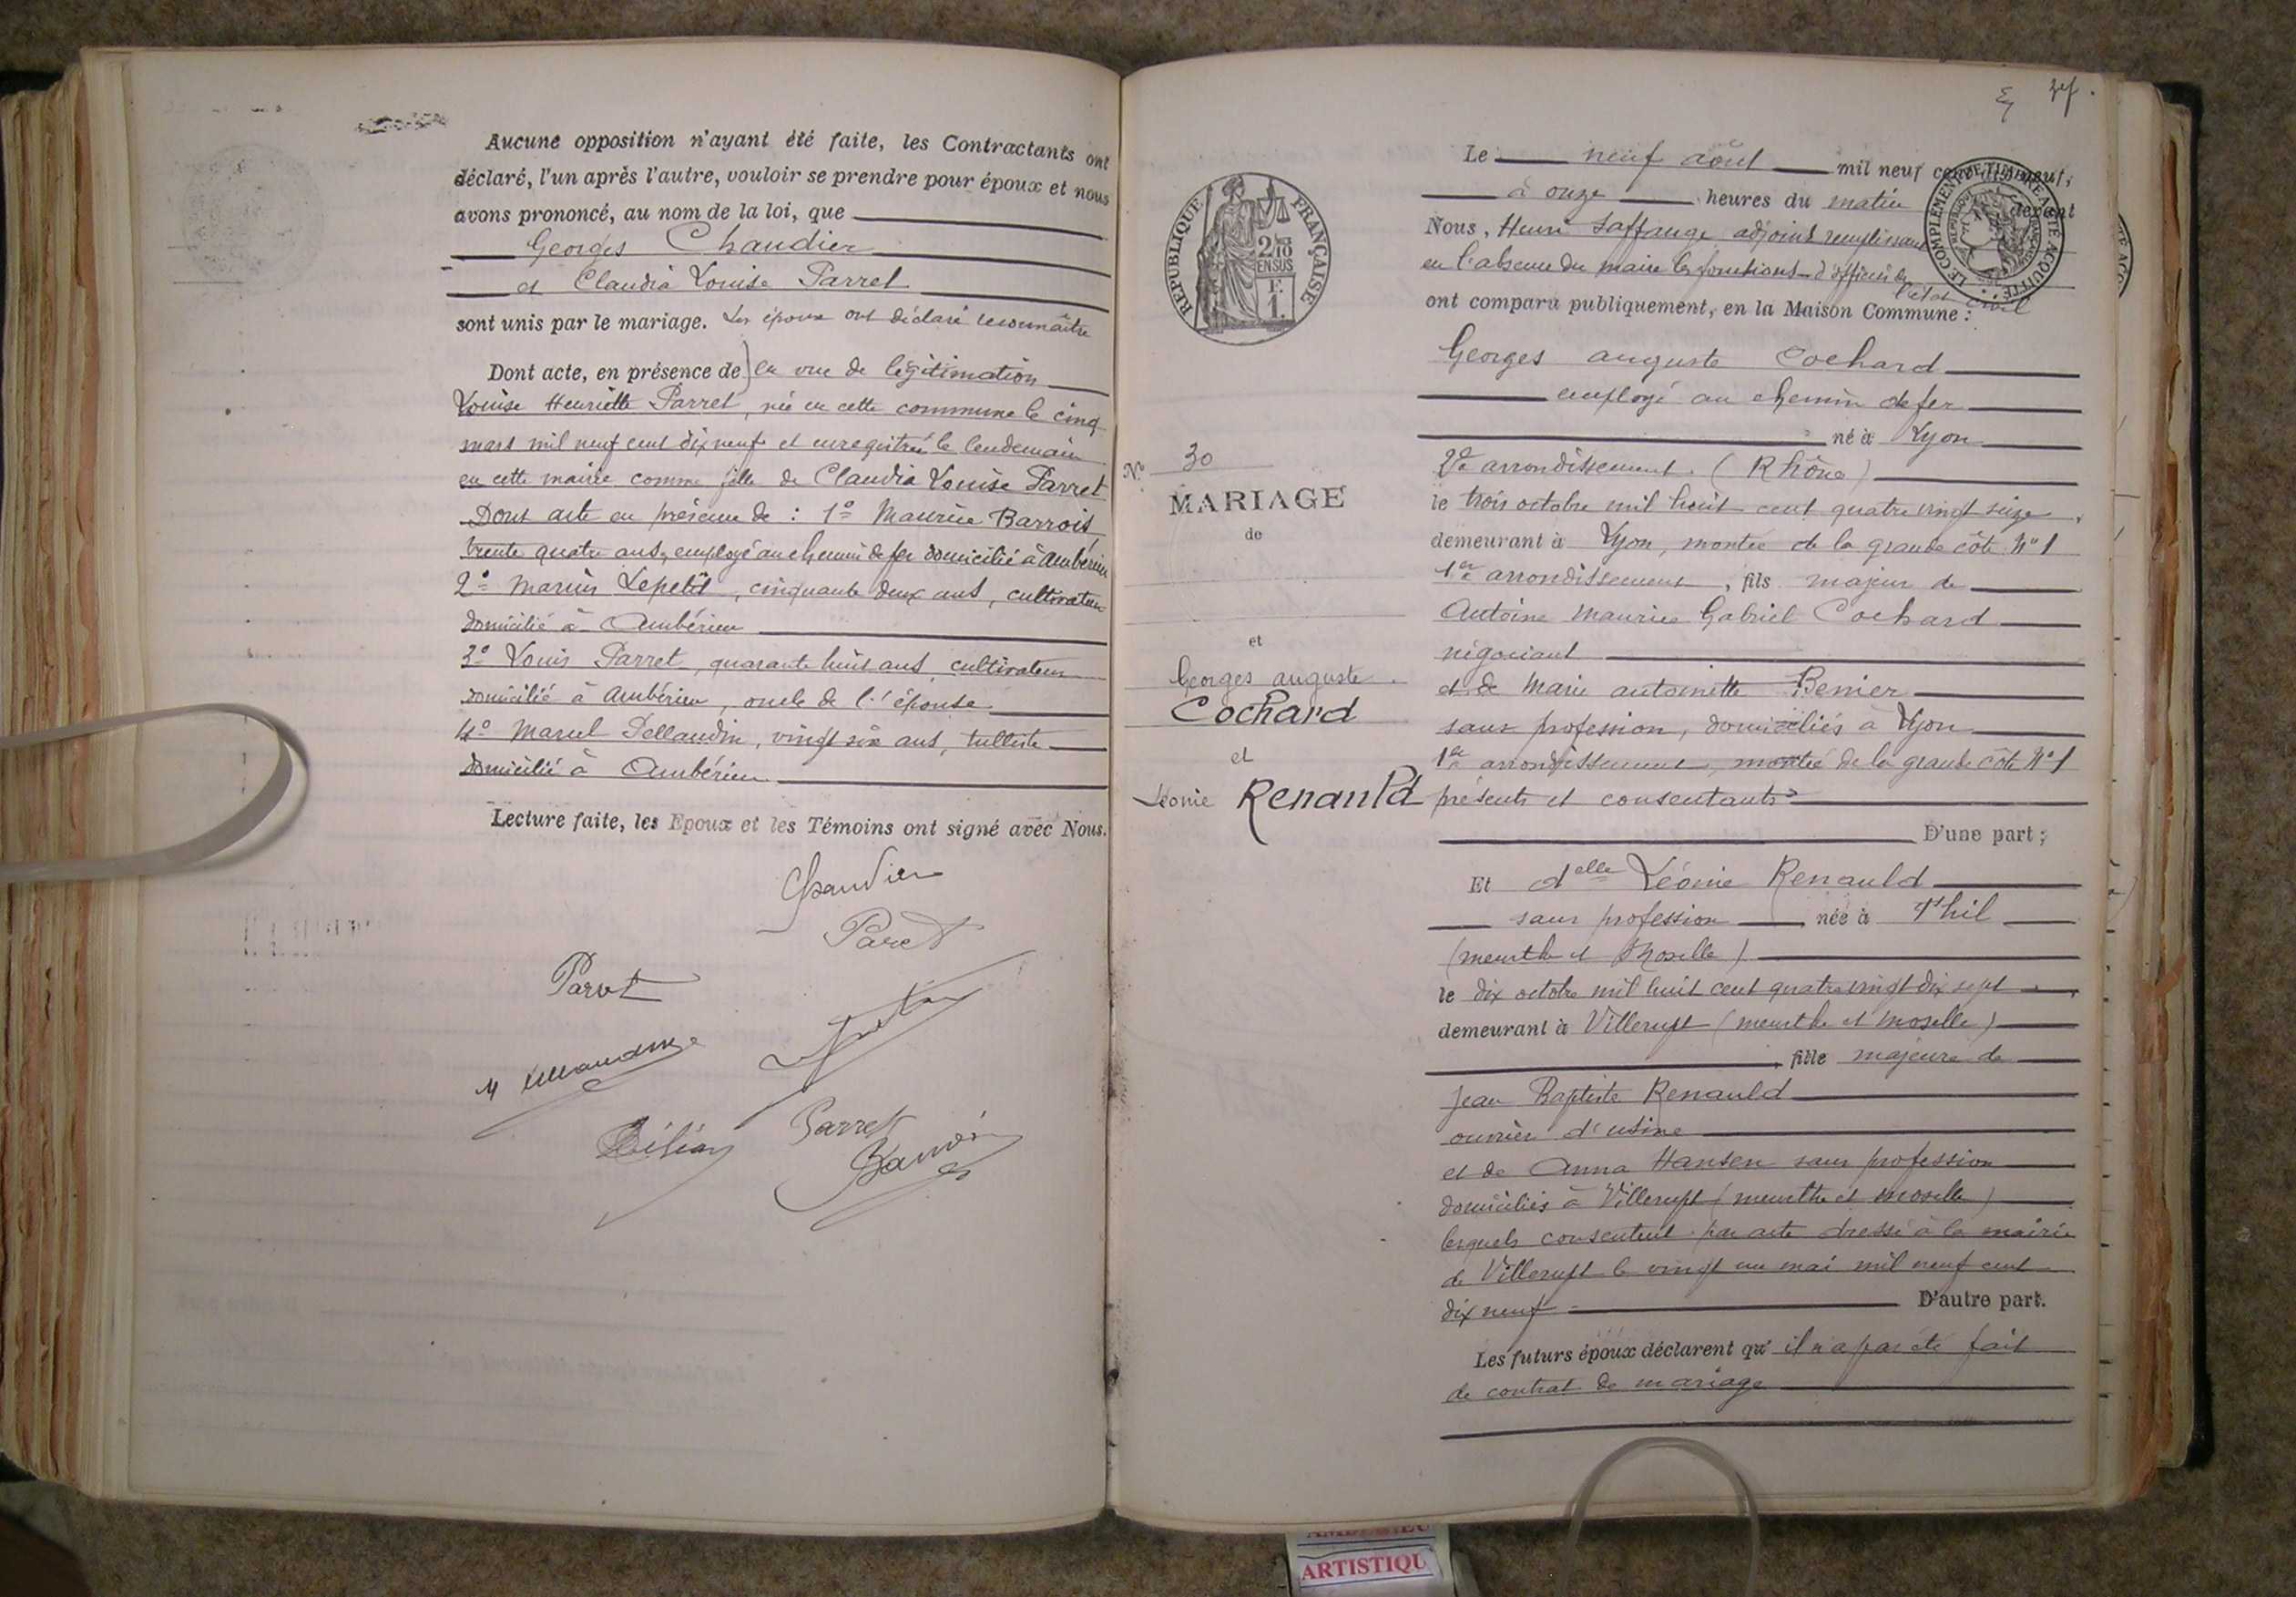 Aucune opposition n'ayant été faite, les Contractants ont
déclaré, l'un après l'autre, vouloir se prendre pour époux et nous
avons prononcé, au nom de la loi, que
Georges Chaudier
et Claudia Louise Parret
sont unis par le mariage. Les époux ont déclaré reconnaître
Dont acte, en présence de) en vue de légitimation
Louise Henriette Parret, née en cette commune le cinq
mars mil neuf cent dix neuf et enregistrée le lendemain
en cette mairie comme fille de Claudia Louise Parret
Dont acte en présence de : 1° Maurice Barrois
trente quatre ans, employé au chemin de fer domicilié à Ambérieu
2° Marius Lepetit, cinquante deux ans, cultivateur
domicilié à Ambérieu
3° Louis Parret, quarante huit ans, cultivateur
domicilié à Ambérieu, oncle de l'épouse
4° Marcel Pellaudin, vingt six ans, tulliste
domicilié à Ambérieu
Lecture faite, les Epoux et les Témoins ont signé avec Nous.
Chaudier
Paret
Parret
Parret
Le neuf août mil neuf cent dix neuf,
à onze heures du matin devant
Nous, Henri Laffange adjoint remplissant
en l'absence du maire les fonctions d'officier de
l'état civil
ont comparu publiquement, en la Maison Commune :
Georges auguste Cochard
employé au chemin de fer
né à Lyon
2e arrondissement. (Rhône)
le trois octobre mil huit cent quatre vingt seize
demeurant à Lyon, montée de la grande côte N° 1
1er arrondissement, fils majeur de
Antoine Maurice Gabriel Cochard
négociant
et de Marie antoinette Benier
sans profession, domiciliés à Lyon
1er arrondissement, montée de la grande côte N° 1
présents et consentants
D'une part ;
Et delle Léonie Renauld
sans profession née à Thil
(meurthe et Moselle)
le dix octobre mil huit cent quatre vingt dix sept
demeurant à Villerupt (meurthe et moselle)
fille majeure de
Jean Baptiste Renauld
ouvrier d'usine
et de Anna Hansen sans profession
domiciliés à Villerupt (meurthe et moselle)
lesquels consentent par acte dressé à la mairie
de Villerupt le vingt un mai mil neuf cent
dix neuf D'autre part.
Les futurs époux déclarent qu'il n'a pas été fait
de contrat de mariage
N° 30
MARIAGE
de
et
Georges auguste
Cochard
et
Léonie Renauld
REPUBLIQUE FRANÇAISE
2/10
EN SUS
F.
1.
LE COMPLEMENT DE TIMBRE A ETE ACQUITTE
ARTISTIQU